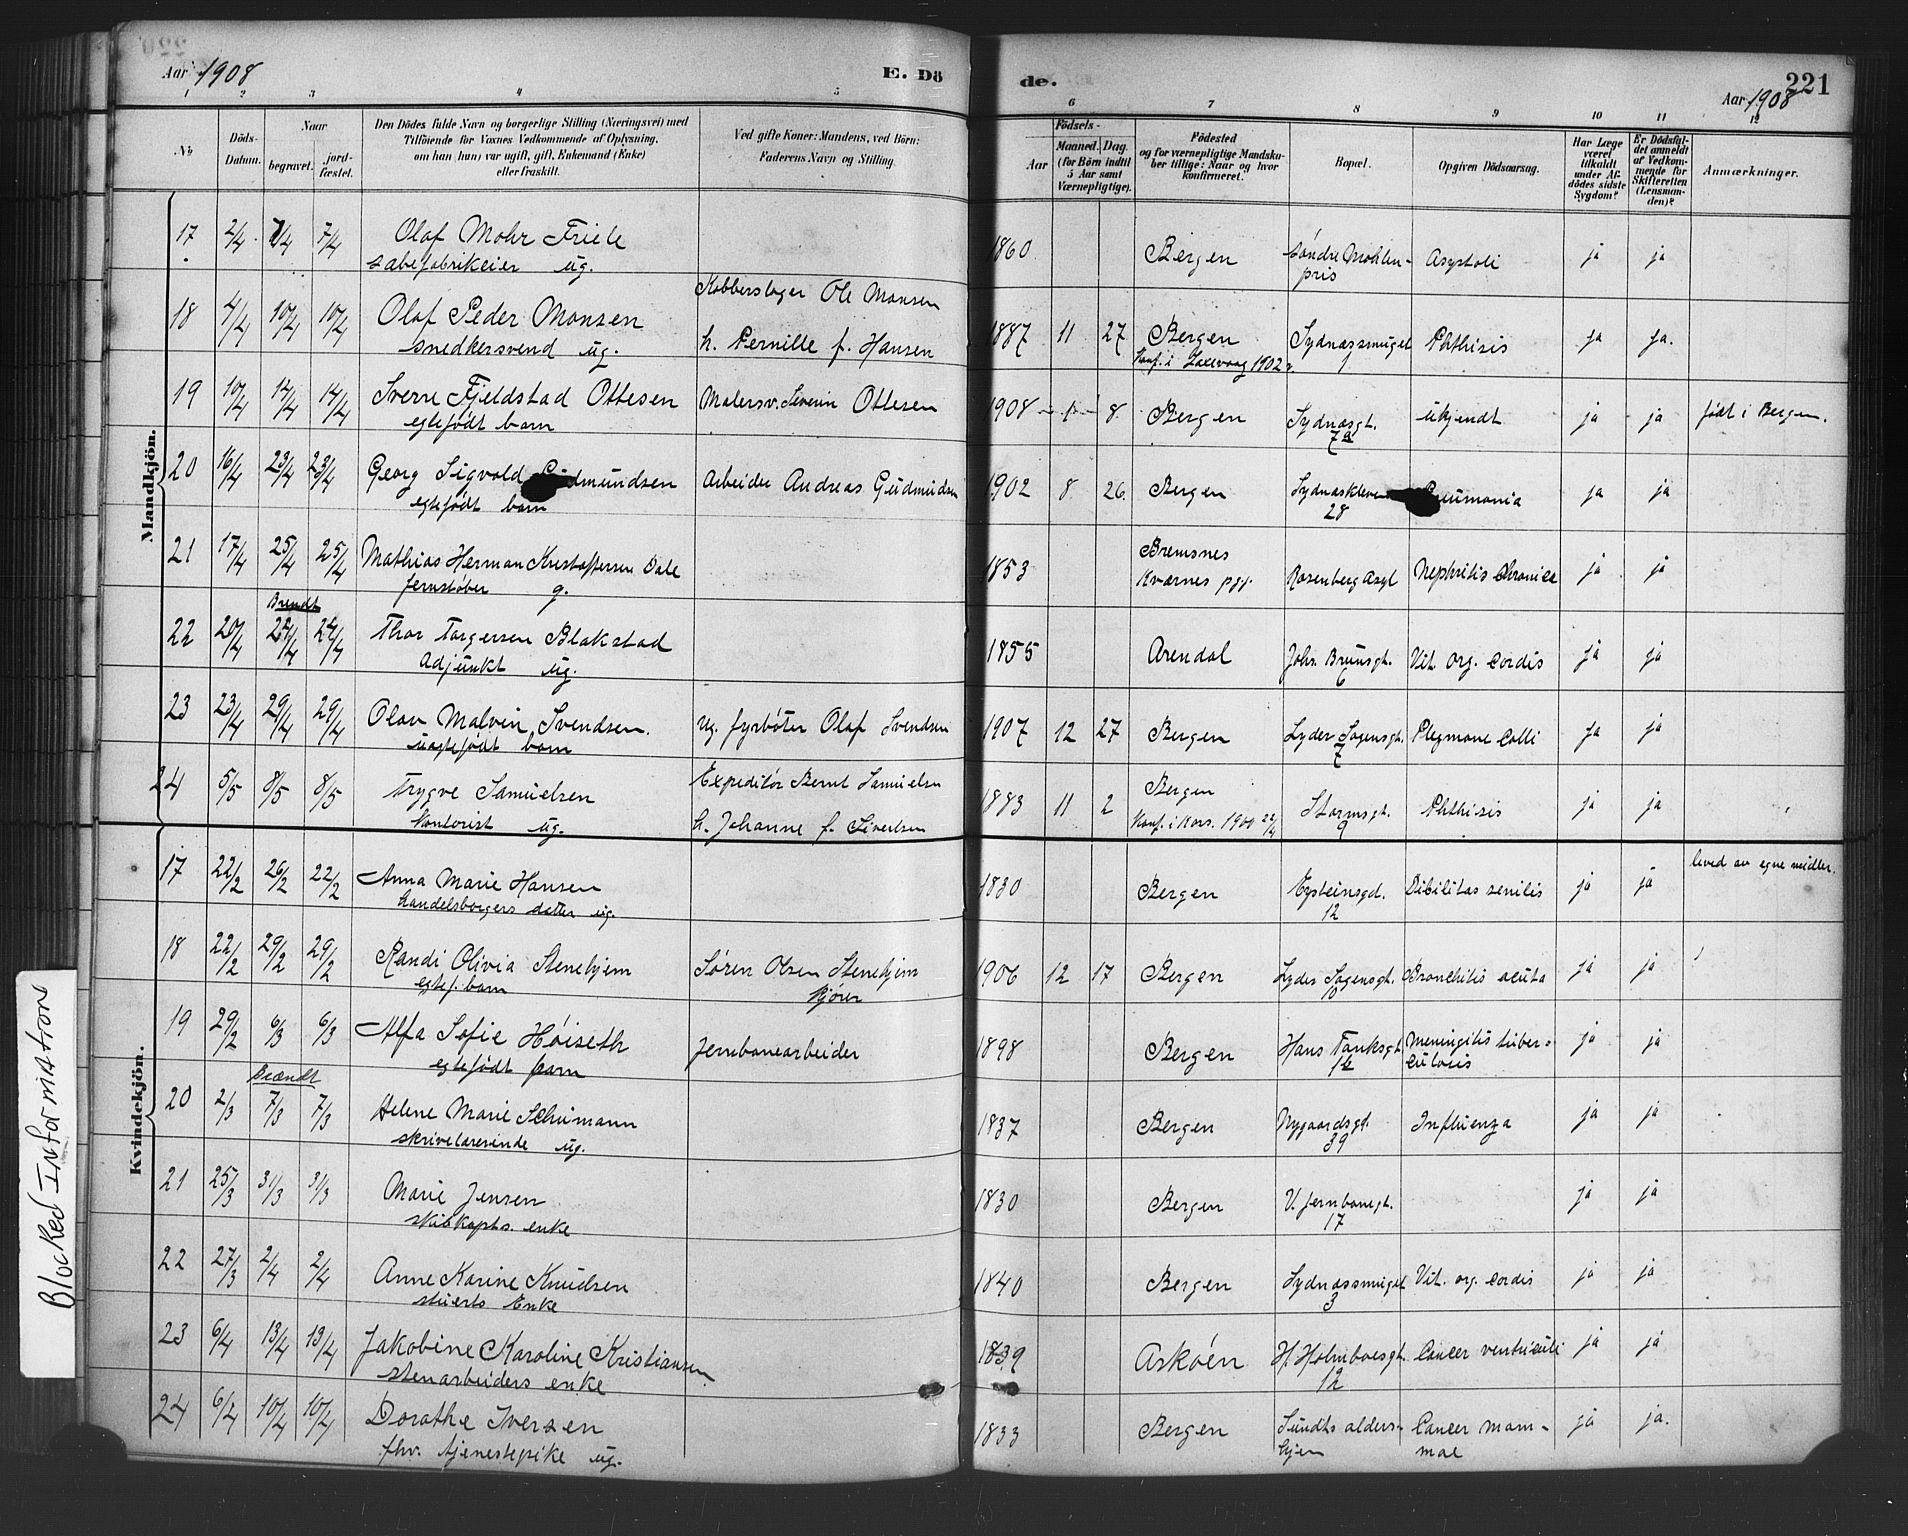 Aar 1908
E. Dö
de.
221
Aar 1908
1 2 3 4 5 6 7 8 9 10 11 12
No
Döds-Datum.
Naar
begravet.
jord-fæstet.
Den Dödes fulde Navn og borgerlige Stilling (Næringsvei) med
Tilföiende for Voxnes Vedkommende af Oplysning.
om han (hun) var ugift, gift, Enkemand (Enke)
eller fraskilt.
Ved gifte Koner: Mandens, ved Börn:
Faderens Navn og Stilling.
Födsels-
Aar
Maaned.
Dag
(for Börn indtil
5 Aar samt
Værnepligtige).
Födested
og for værnepligtige Mandska-
ber tillige: Naar og hvor
konfirmeret.
Bopæl.
Opgiven Dödsaarsag.
Har Læge
været
tilkaldt
under Af-
dödes sidste
Sygdom?
Er Dödsfal-
det anmeldt
af Vedkom-
mende for
Skifteretten
(Lensman-
den)?
Anmærkninger.
Mandkjön.
17 2/4 7/4 7/4 Olaf Mohr Friele 1860 Bergen søndre Møhlen- Asystoli ja ja
sæbefabrikeier ug. pris
18 4/4 10/4 10/4 Olaf Peder Monsen Kobberslager Ole Monsen 1887 11 27 Bergen Sydnæssmuget Phthisis ja ja.
snedkersvend ug. h. Pernille f. Hansen Konf. i Laxevaag 1902 1
19 10/4 14/4 14/4 Sverre Fjeldstad Ottesen Malersv. Severin Ottesen 1908 8 Bergen Sydnæsgt. ukjendt ja ja født i Bergen.
egtefødt barn 7a
20 16/4 23/4 23/4 Georg Sigvald Gudmundsen Arbeider Andreas Gudmundsen 1902 8 26 Bergen Sydnæskleven Pneumonia ja ja
egtefødt barn 28
21 17/4 25/4 25/4 Mathias Herman Kristoffersen Dale 1853 Bremsnes Rosenberg Asyl Nephritis chronica ja ja
jernstøber g. Kværnes pgj.
Brændt
22 20/4 24/4 24/4 Thor Torgersen Blakstad 1855 Arendal Johs. Brunsgt. Vit. org. cordis ja ja
Adjunkt ug. 6
23 23/4 29/4 29/4 Olav Malvin Svendsen. ug. fyrbøter Olaf Svendsen 1907 12 27 Bergen Lyder Sagensgt. Flegmone Colli ja ja
uægtefødt barn 7
24 5/5 8/5 8/5 Trygve Samuelsen Expeditør Bernt Samuelsen 1883 11 2 Bergen Stormsgt. Phthisis ja ja
Kontorist ug. h. Johanne f. Sivertsen Konf. i Kors. 1900 22/4 9
Kvindekjön.
17 22/2 26/2 22/2 Anna Marie Hansen 1830 Bergen Eysteinsgd. Debilitas senilis ja ja leved av egne midler.
handelsborgers datter ug. 12
18 22/2 29/2 29/2 Randi Olivia Stenehjem Søren Olsen Stenehjem 1906 12 17 Bergen Lyder Sagensgt. Bronchitis acuta ja ja
egtef. barn kjører 10
19 29/2 6/3 6/3 Alfa Sofie Høiseth Jernbanearbeider 1898 Bergen Hans Tanksgt. Meningitis tuber- ja ja
egtefødt barn culosis
Brændt
20 2/3 7/3 7/3 Helene Marie Schumann 1837 Bergen Nygaardsgt. Influenza ja ja
skrivelærerinde ug. 39
21 25/3 31/3 31/3 Marie Jensen 1830 Bergen V. Jernbanegt. ja ja
skibkapts. enke 17
22 27/3 2/4 2/4 Anne Karine Knudsen 1840 Bergen Sydnæssmuget Vit. org. cordis ja ja
stuerts Enke 3
23 6/4 13/4 13/4 Jakobine Karoline Kristiansen 1839 Askøen H. Holmboesgt. Cancer ventriculi ja ja
stenarbeiders enke 12
24 6/4 10/4 10/4 Dorothe Iversen 1833 Bergen Sundts alders- Cancer mam- ja ja.
fhv. tjenestepike ug. hjem mae
Blocked Information